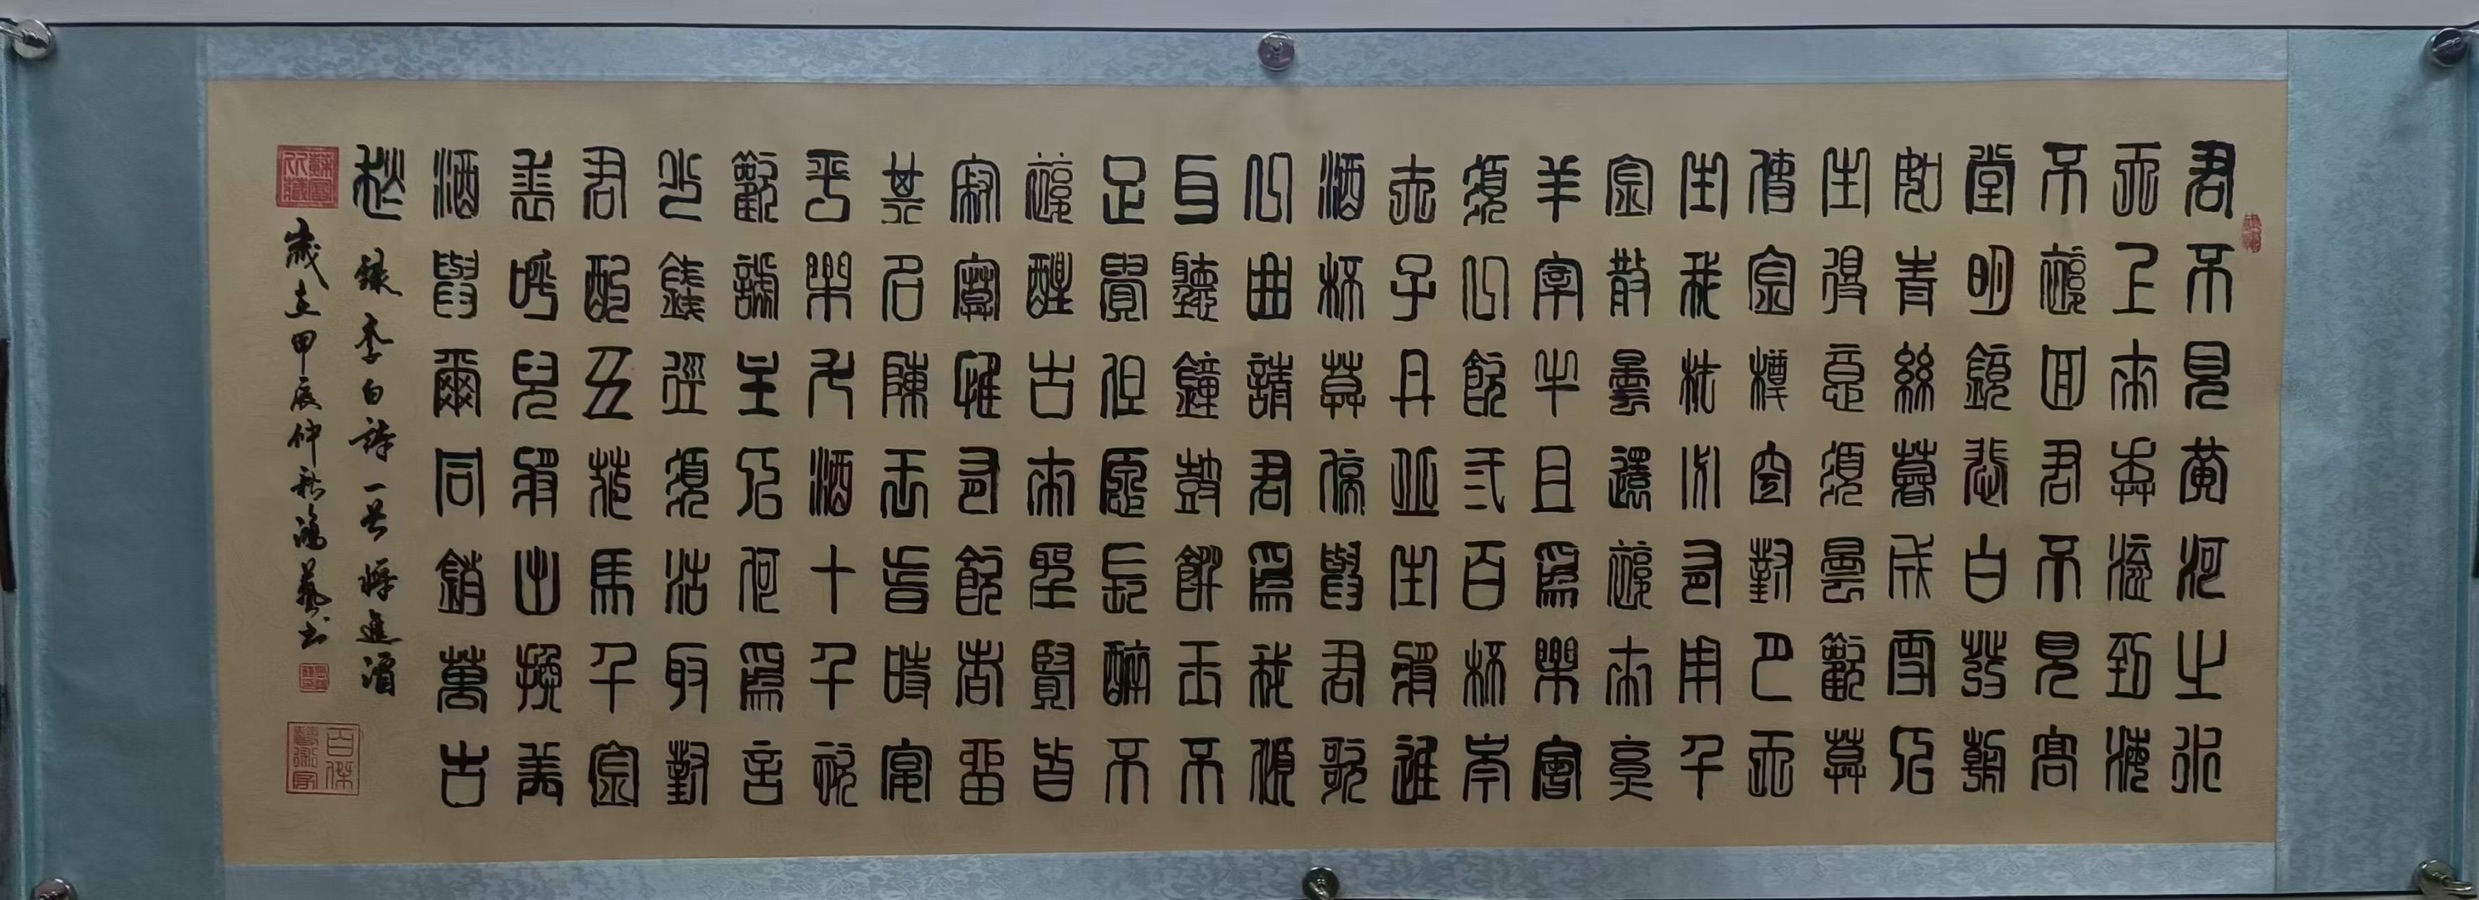 君不見黃河之水
天上來奔流到海
不復回君不見高
堂明鏡悲白發朝
如青絲暮成雪人
生得意須盡歡莫
使金樽空對月天
生我材必有用千
金散盡還復來烹
羊宰牛且為樂會
須一飲三百杯岑
夫子丹丘生將進
酒杯莫停與君歌
一曲請君為我傾
耳聽鐘鼓饌玉不
足貴但願長醉不
復醒古來聖賢皆
寂寞惟有飲者留
其名陳王昔時宴
平樂斗酒十千恣
歡謔主人何為言
少錢徑須沽取對
君酌五花馬千金
裘呼兒將出換美
酒與爾同銷萬古
愁 錄李白詩一首將進酒
歲在甲辰仲秋鴻藝書
百傑藝術家